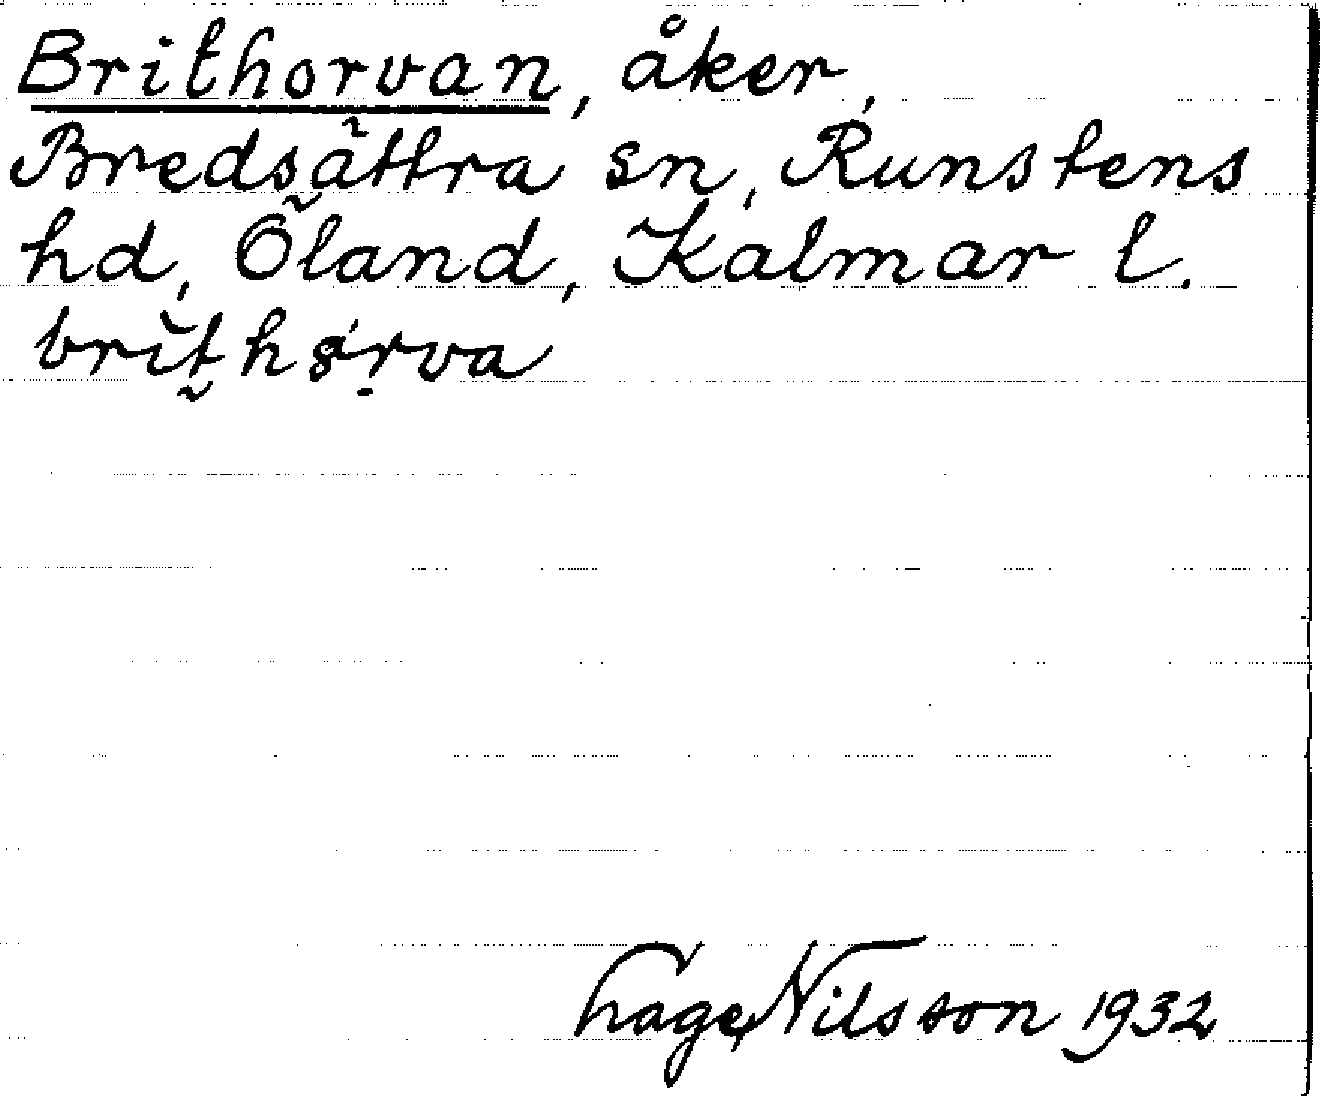 Brithorvan, åker,
Bredsättra sn, Runstens
hd, Öland, Kalmar l.
Nilsson 1932